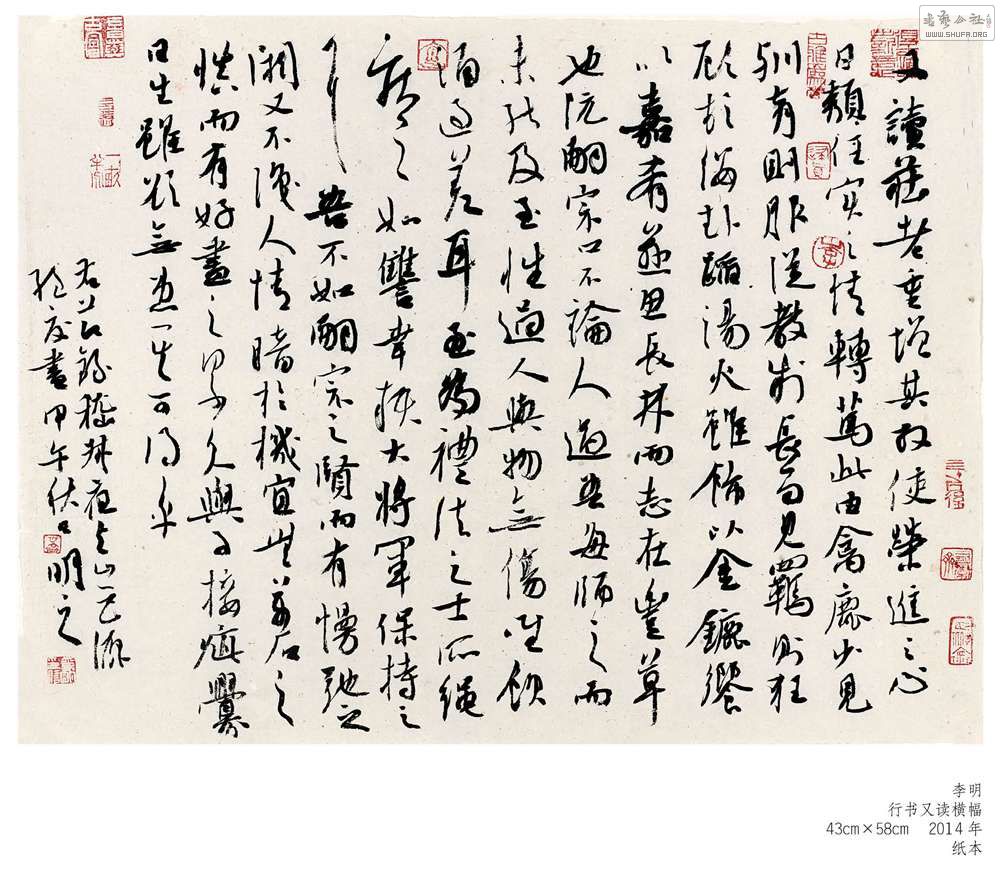 又讀莊老重增其放使榮進之心
日頹任實之情轉篤此由禽鹿少見
馴育則服從教制長而見羈則狂
顧頓纓赴蹈湯火雖飾以金鑣饗
以嘉肴愈思長林而志在豐草
也阮嗣宗口不論人過吾每師之而
未能及至性過人與物無傷唯飲
酒過差耳至為禮法之士所繩
疾之如讎幸賴大將軍保持之
耳吾不如嗣宗之賢而有慢弛之
闕又不識人情暗於機宜無萬石之
慎而有好盡之累久與事接疵釁
日生雖欲無患其可得乎
右節錄嵇叔夜与山巨源
絕交書甲午伏日明之
李明
行书又读横幅
43cm×58cm 2014年
纸本
书艺公社
WWW.SHUFA.ORG